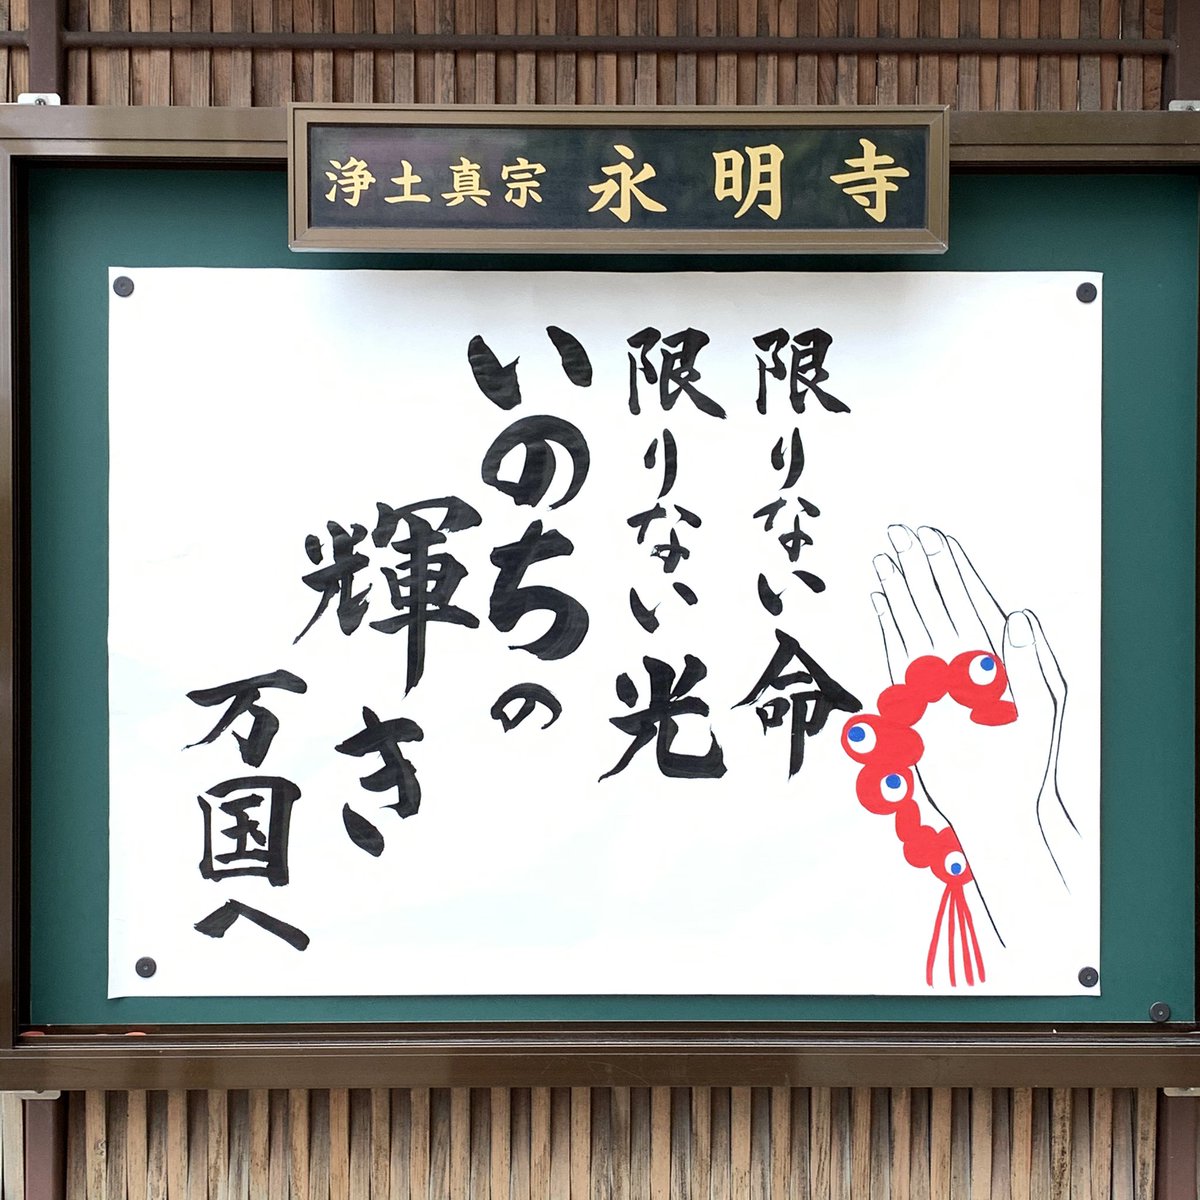 浄土真宗 永明寺
限りない命
限りない光
いのちの
輝き
万国へ